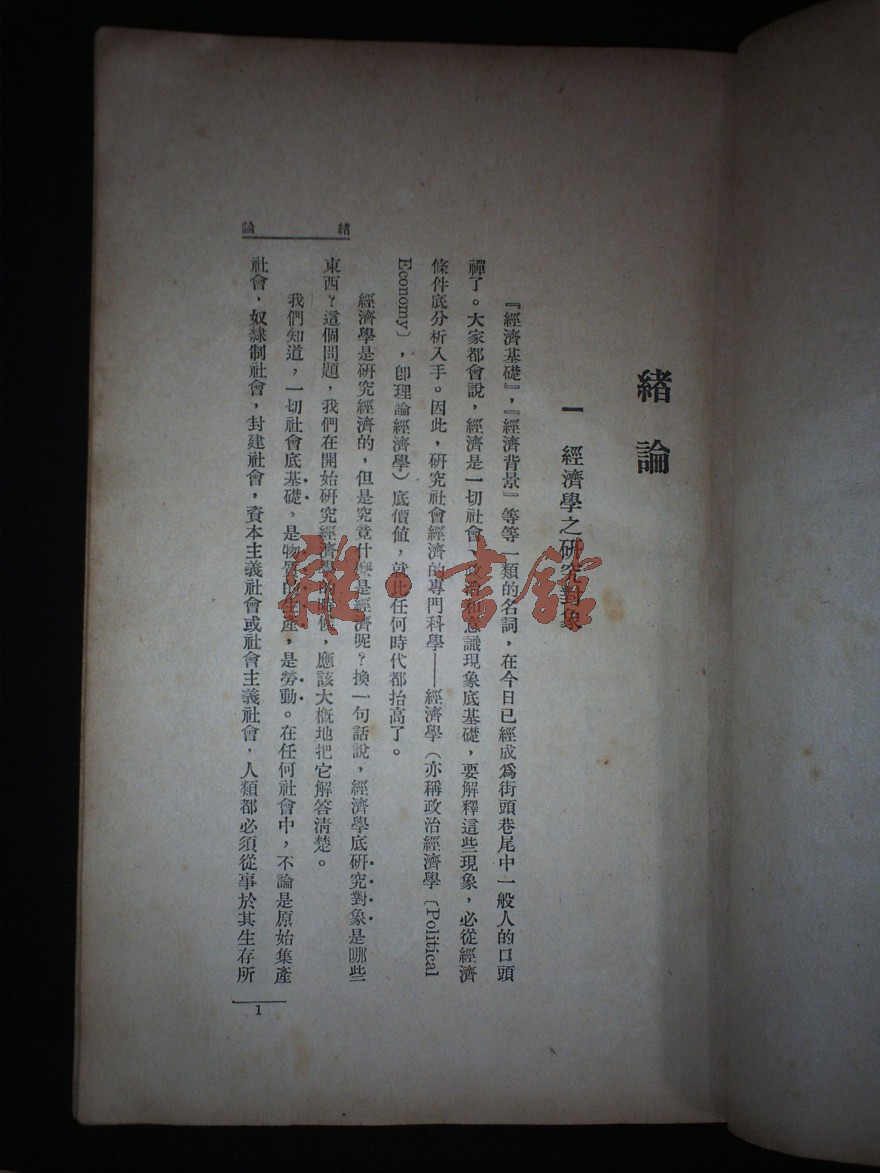 緒論
一 經濟學之研究對象
『經濟基礎』，『經濟背景』等等一類的名詞，在今日已經成爲街頭巷尾中一般人的口頭
禪了。大家都會說，經濟是一切社會、政治和意識現象底基礎，要解釋這些現象，必從經濟
條件底分析入手。因此，研究社會經濟的專門科學——經濟學（亦稱政治經濟學〔Political
Economy〕，卽理論經濟學）底價値，就比任何時代都抬高了。
經濟學是研究經濟的，但是究竟什麼是經濟呢？換一句話說，經濟學底研究對象是哪些
東西？這個問題，我們在開始研究經濟學的時候，應該大概地把它解答淸楚。
我們知道，一切社會底基礎，是物質的生產，是勞動。在任何社會中，不論是原始集產
社會，奴隸制社會，封建社會，資本主義社會或社會主義社會，人類都必須從事於其生存所
緒論
1
雜·書館